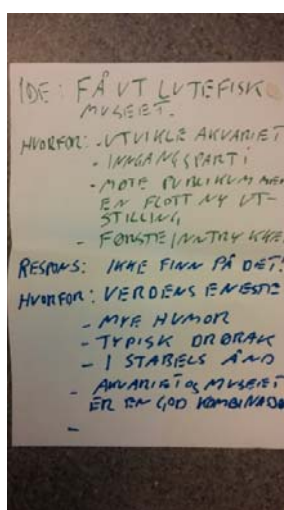 IDE: FÅ UT LUTEFISK
MUSEET.
HVORFOR: - UTVIKLE AKVARIET
- INNGANGSPARTI
- MØTE PUBLIKUM MED
EN FLOTT NY UT-
STILLING
- FØRSTEINNTRYKKE
RESPONS: IKKE FINN PÅ DET!
HVORFOR: VERDENS ENESTE
- MYE HUMOR
- TYPISK DRØBAK
- I STABELS ÅND
- AKVARIET OG MUSEET
ER EN GOD KOMBINASJO
-